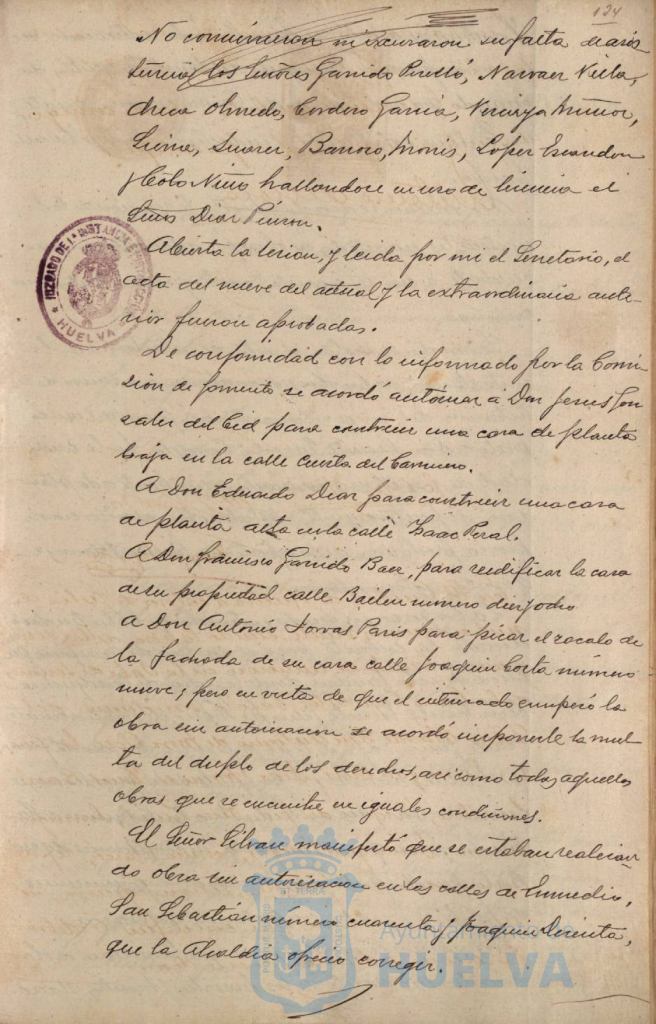 124
No convinieron ni excusaron su falta de asis
tencia los Señores Garrido Perelló, Narvaez Villa,
checa Olmedo, Cordero Garcia, Muñoz,
Suarez, Barroso, Monis, Lopez Escandon
y Colo Niño hallandose en uso de licencia el
Señor Diaz Pinzon.
Abierta la sesion, y leida por mi el Secretario, el
acta del nueve del actual y la extraordinaria ante-
rior fueron aprobadas.
De conformidad con lo informado por la Comi
sion de fomento se acordó autorizar á Don Jesus Gon
zalez del Cid para construir una casa de planta
baja en la calle Cuesta del Carnicero.
A Don Eduardo Diaz para construir una casa
de planta alta en la calle Isaac Peral.
A Don Francisco Garrido Baez, para reedificar la casa
de su propiedad calle Bailen número diez y ocho
A Don Antonio Paris para picar el zocalo de
la fachada de su casa calle Joaquin Costa número
nueve; pero en vista de que el interesado empezó la
obra sin autorizacion se acordó imponerle la mul
ta del duplo de los derechos, asi como todas aquellas
obras que se encuentre en iguales condiciones.
El Señor Silvan manifestó que se estaban realizan
do obra sin autorizacion en las calles de Enmedio,
San Sebastián número cuarenta y Joaquin Dicenta,
que la Alcaldia ofreció corregir.
JUZGADO DE 1ª INSTANCIA
HUELVA
Ayuntamiento de
HUELVA